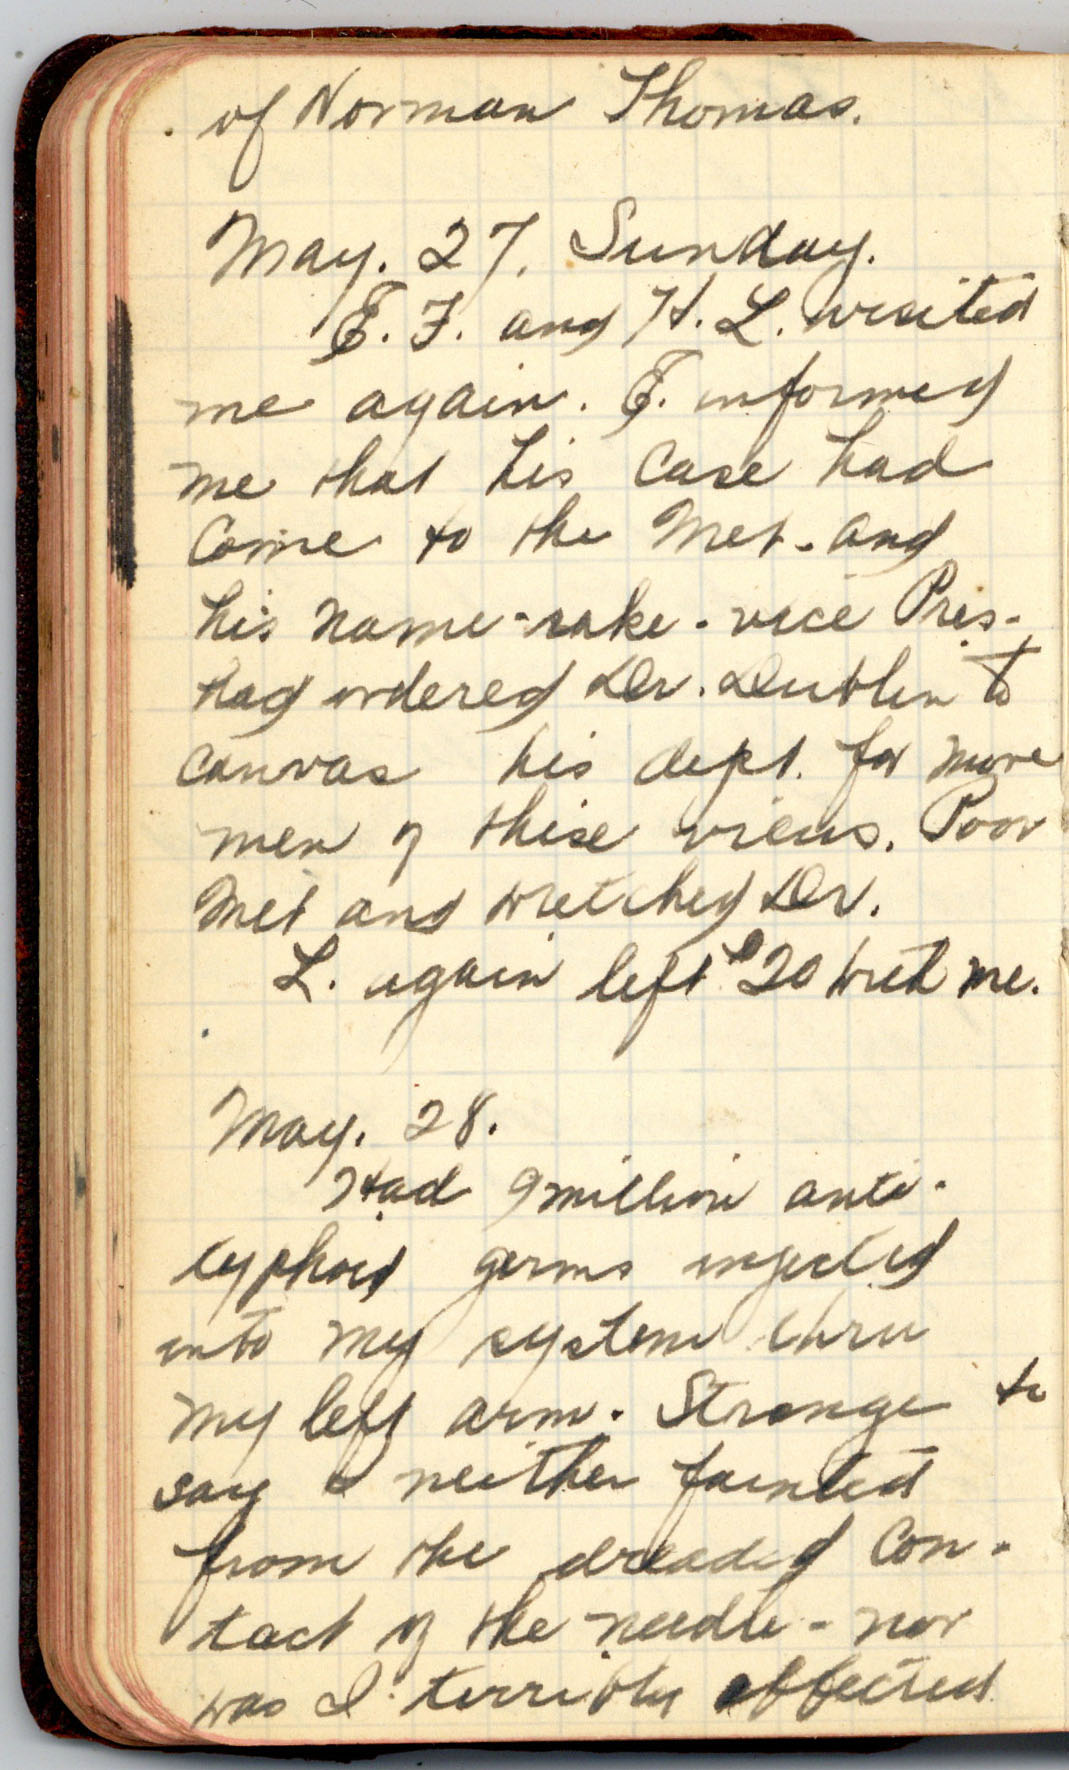 of Norman Thomas.
May. 27. Sunday.
E. F. and H. L. visited
me again. E. informed
me that his case had
come to the Met. and
his name-sake - vice Pres.
had ordered Dr. Dublin to
canvas his dept. for more
men of these views. Poor
Met and wretched Dr.
L. again left $20 with me.
May. 28.
Had 9 million anti-
typhoid germs injected
into my system thru
my left arm. Strange to
say I neither fainted
from the dreaded con-
tact of the needle - nor
was I terribly affected